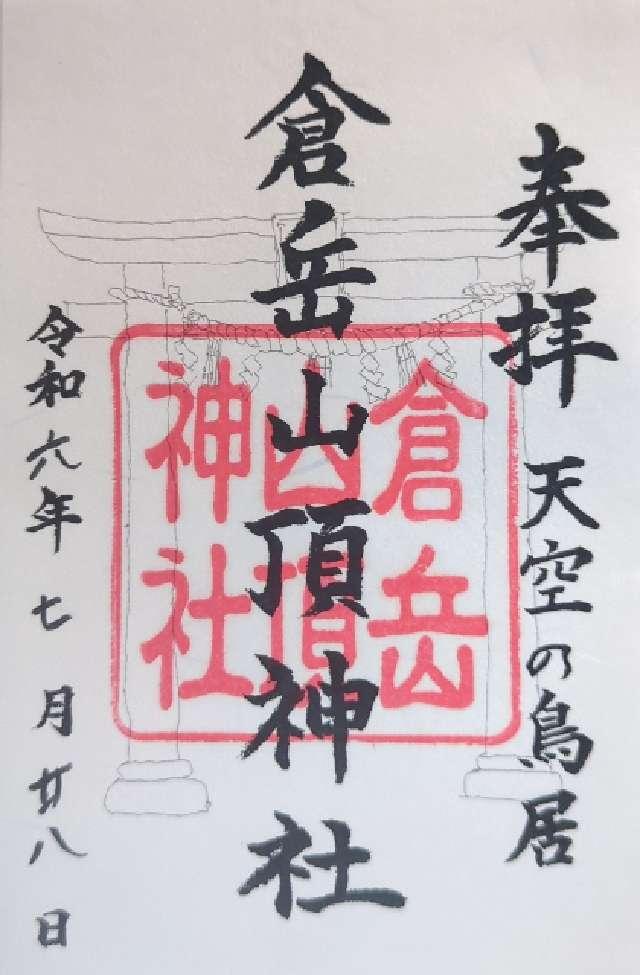 奉拝 天空の鳥居
倉岳山頂神社
倉岳
山頂
神社
令和六年七月廿八日